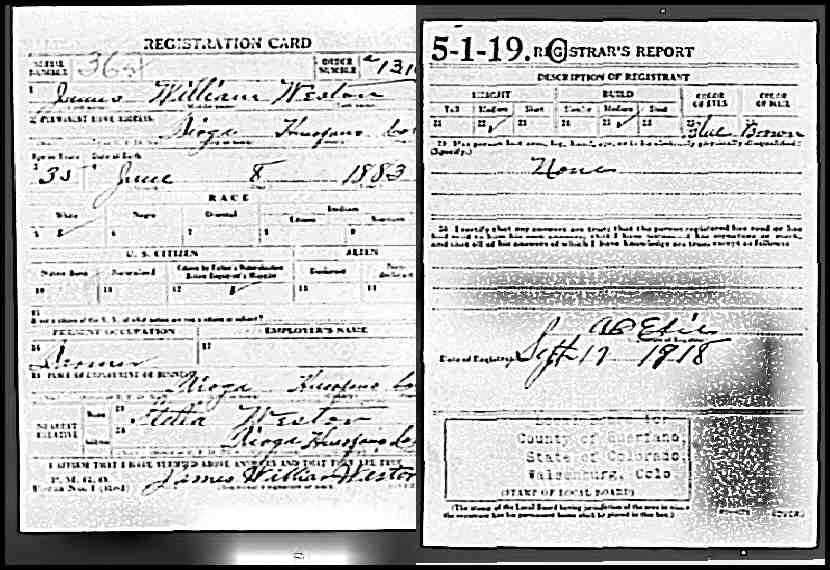 REGISTRATION CARD
SERIAL NUMBER 365
ORDER NUMBER
1 James William Weston
2 PERMANENT HOME ADDRESS:
Tioga Huerfano Co
Age in Years Date of Birth
35 June 8 1883
RACE
White Negro Oriental Indian
Citizen
5 6 7 8 9
U. S. CITIZEN ALIEN
Native Born Naturalized Citizen by Father's Naturalization Before Registrant's Majority Declarant
10 11 12 13 14
15
If not a citizen of the U. S., of what nation are you a citizen or subject?
PRESENT OCCUPATION EMPLOYER'S NAME
16 17
18 PLACE OF EMPLOYMENT OR BUSINESS:
Tioga Huerfano Co
NEAREST RELATIVE
Name 19 Stella Weston
Address 20 Tioga Huerfano Co
I AFFIRM THAT I HAVE VERIFIED ABOVE ANSWERS AND THAT THEY ARE TRUE
James William Weston
5-1-19. REGISTRAR'S REPORT
DESCRIPTION OF REGISTRANT
HEIGHT BUILD COLOR OF EYES COLOR OF HAIR
Tall Medium Short Slender Medium Stout
21 22 23 24 25 26 27 28
Blue Brown
29 Has person lost arm, leg, hand, eye, or is he obviously physically disqualified?
(Specify.)
None
30 I certify that my answers are true; that the person registered has read or has
had read to him his own answers; that I have witnessed his signature or mark,
and that all of his answers of which I have knowledge are true, except as follows:
Date of Registration Sept 17 1918
County of Huerfano,
State of Colorado,
Walsenburg, Colo
(STAMP OF LOCAL BOARD)
(The stamp of the Local Board having jurisdiction of the area in which
the registrant has his permanent home shall be placed in this box.)
(OVER)